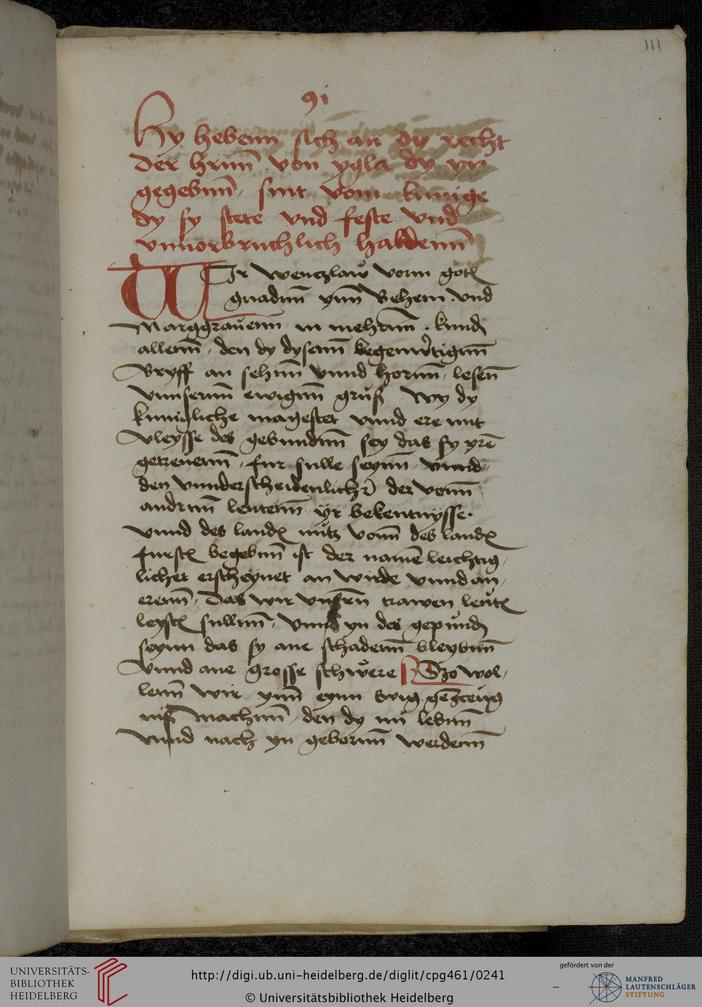 111
91
Hy hebenn sich an dy recht
der hrnn̄ von ygla dy yn
gegebnn̄ sint vom kunige
dy sy stete vnd feste vnd
vnuorbruchlich haldenn̄
WIr wenczlaw vonn gotꝭ
gnadnn̄ ynn Behem vnd
Marggrauenn in meharn̄ kund
allenn̄ den dy dysenn̄ kegenwꝰtignn̄
Bryff an sehnn̄ vnnd hornn̄ lesen̄
vnnsernn̄ ewignn̄ grus Wy dy
kunigliche magestet vnnd ere mit
vleysse des gebundnn̄ sey das sy yre̅
getreuenn̄ fur sulle seynn̄ vnnd
den vnnderscheidenlichꝰ der vonn̄
andrnn̄ leutenn̄ yr bekentnysse
vnnd des landꝭ nutz vonn̄ des landꝭ
furstꝭ begebnn̄ ist der name̅ leichtig
licher erscheynet an wirde vnnd an
erenn̄ Das wir vnsen̄ trawen leutꝭ
leystꝭ sullnn̄ vnnd yn des gepundꝭ
seynn das sy ane schadenn̄ bleybnn̄
Vnnd ane grosse schwere Szo wol
lenn̄ wir ynn̄ eynn ewig geczeug
nis machnn̄ den dy nu̅ lebnn̄
vnnd nach yn gebornn̄ werdenn̄
UNIVERSITÄTS-
BIBLIOTHEK
HEIDELBERG
http://digi.ub.uni-heidelberg.de/diglit/cpg461/0241
© Universitätsbibliothek Heidelberg
gefördert von der
MANFRED
LAUTENSCHLÄGER
STIFTUNG